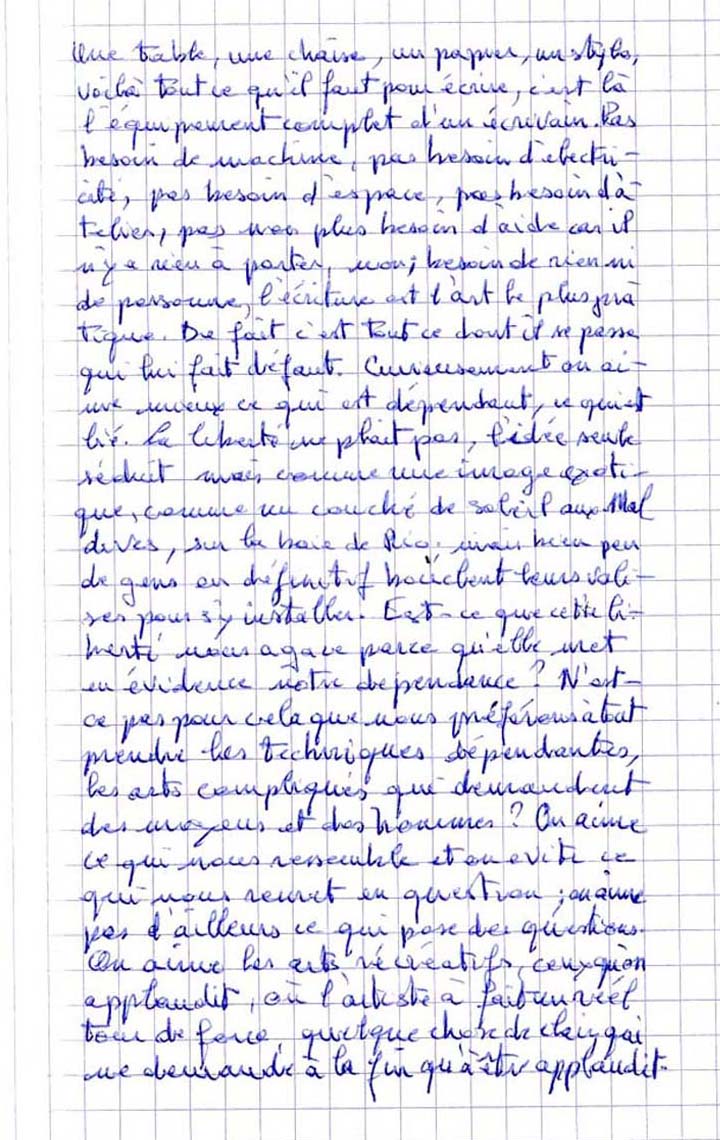 Une table, une chaise, un papier, un stylo,
voilà tout ce qu'il faut pour écrire, c'est là
l'équipement complet d'un écrivain. Pas
besoin de machine, pas besoin d'électri-
cité, pas besoin d'espace, pas besoin d'à
telier, pas non plus besoin d'aide car il
n'y a rien à porter, non; besoin de rien ni
de personne, l'écriture est l'art le plus pra
tique. De fait c'est tout ce dont il se passe
qui lui fait défaut. Curieusement on ai-
me mieux ce qui est dépendant, ce qui est
lié. La liberté ne plait pas, l'idée seule
séduit mais comme une image exoti-
que, comme un couché de soleil aux Mal
dives, sur la baie de Rio; mais bien peu
de gens en définitif bouclent leurs vali-
ses pour s'y installer. Est-ce que cette li-
berté nous agace parce qu'elle met
en évidence notre dépendance ? N'est-
ce pas pour cela que nous préférons à tout
prendre les techniques dépendantes,
les arts compliqués qui demandent
des moyens et des hommes ? On aime
ce qui nous ressemble et on evite ce
qui nous remet en question ; on aime
pas d'ailleurs ce qui pose des questions.
On aime les arts récréatifs, ceux qu'on
applaudit, où l'artiste à fait un réel
tour de force, quelque chose de clair, qui
ne demande à la fin qu'à être applaudit.